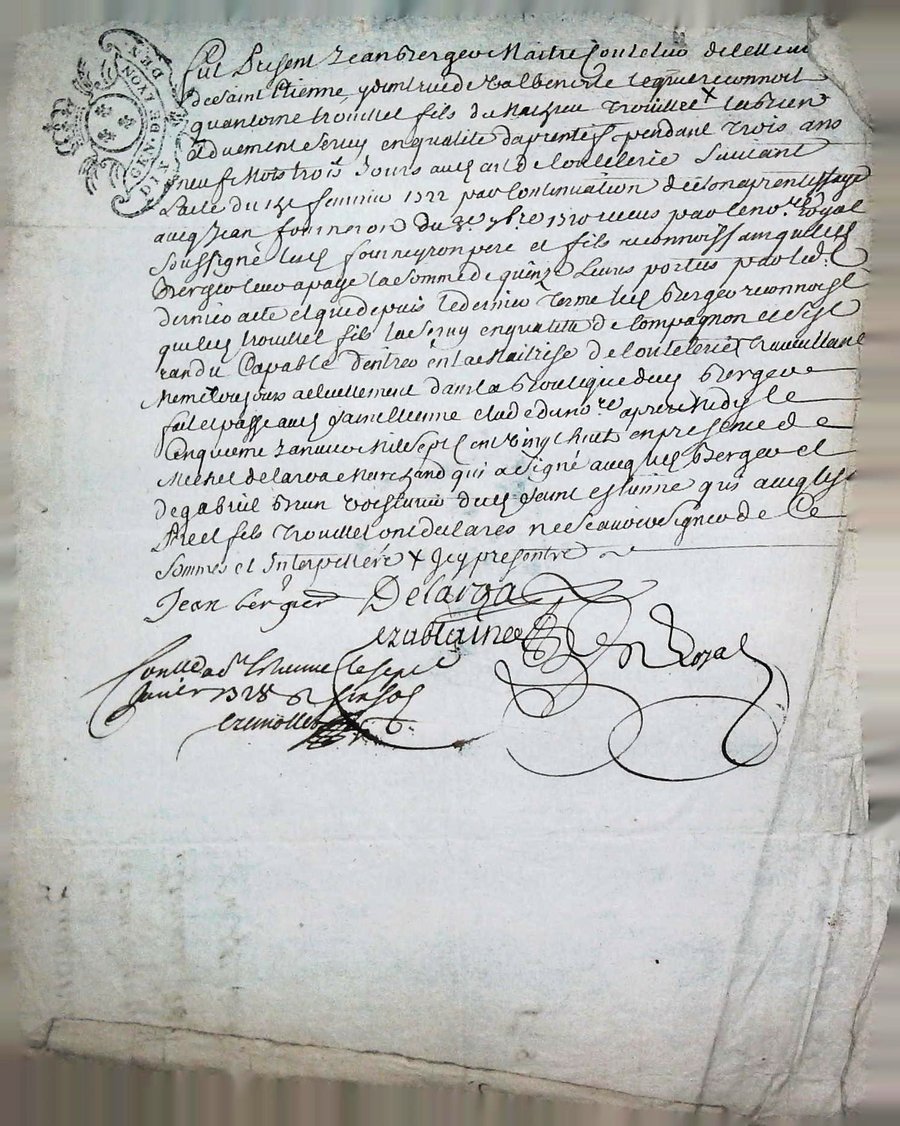 GEN. DE LYON
DIX DEN.
Fut présent Jean Bergeo Maitre Coutelio de cette ville
de Saint Etienne y dmt rue de Valbenoite lequel reconnoit
qu antoine trouillet fils de Mathieu Trouillet x la bien
et duement servy en qualité d'aprentif pendant trois ans
neuf Mois trois Jours audt art de Coutelerie Suivant
Lacte du feuvrier 1722 par Continuation de son aprentissage
aveq Jean fourneron du 3e. 9bre. 1720 receus par le nore. Royal
Soussigné lesd fourneyron pere et fils reconnoissant que led
Bergeo leur a payé la Somme de quinze Livres portés par led.
dernier acte et que depuis le dernier terme led Bergeo reconnoist
que led trouillet fils la servy en qualitté de Compagnon et sest
randu Capable dentrer en la Maitrise de Coutelerie travaillant
meme toujours actuellement dans la Boutique dud Bergeo
fait et passé aud Saint Etienne etude du nore. apres Midy le
Cinquieme Janvier Mil sept cent vingt huit en presence de
Michel delaroa Marchand qui a signé aveq led Bergeo et
de gabriel Brun voiturier dud Saint estienne qui aveq lesd
Pere et fils trouillet ont declaré ne scavoir signer de Ce
Sommés et Interpellés x Icy presentre
Jean bergier Delaroa
Royal
Conllé a St Estienne le sept
Janvier 1728 R